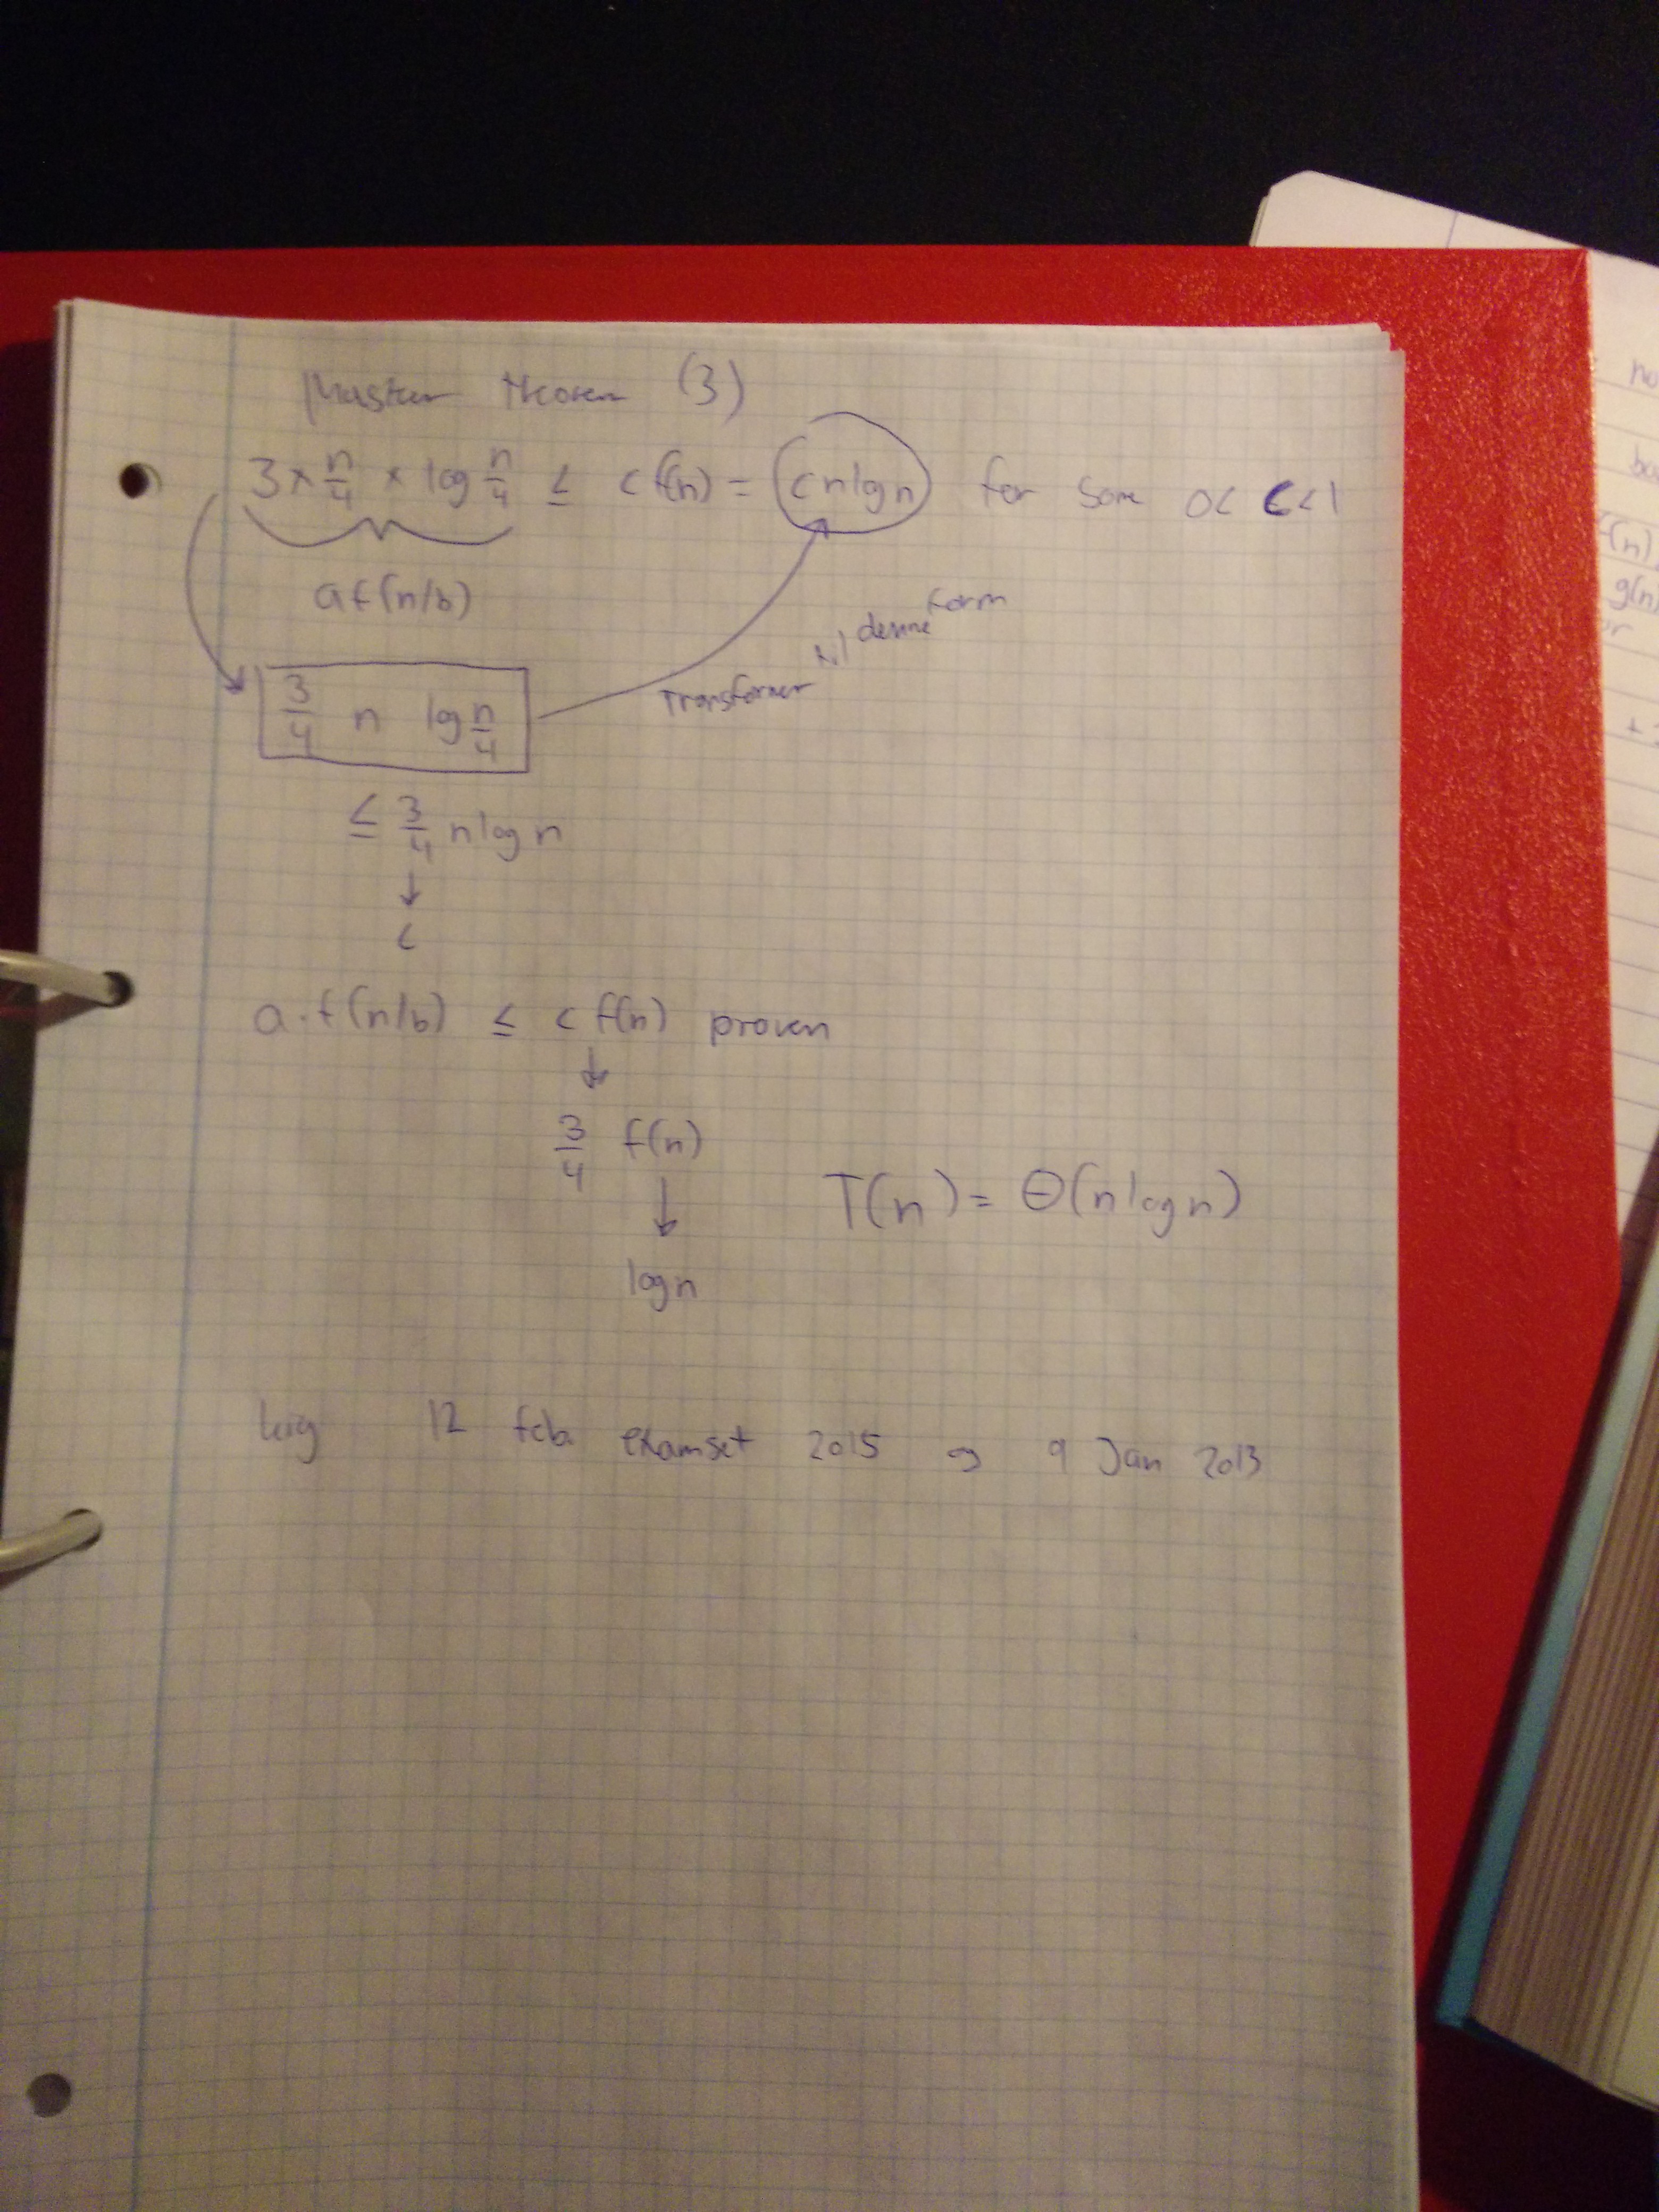 Master Theorem (3)
3 × n/4 × log n/4 ≤ c f(n) = c n log n for some 0 < c < 1
a f(n/b)
Transformer til denne form
3/4 n log n/4
≤ 3/4 n log n
↓
c
a · f(n/b) ≤ c f(n) proven
↓
3/4 f(n)
T(n) = Θ(n log n)
↓
log n
kig 12 feb. examset 2015 og 9 Jan 2013
f(n)
g(n)